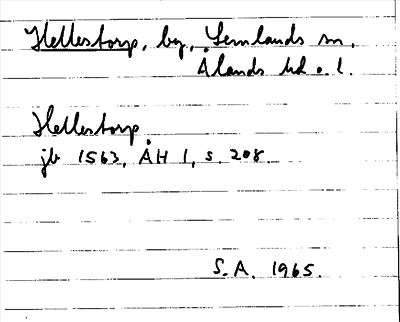 Hellestorp, by, Lemlands sn,
Ålands hd o. l.
Hellestorp
jb 1563, ÅH 1, s. 208.
S.A. 1965.